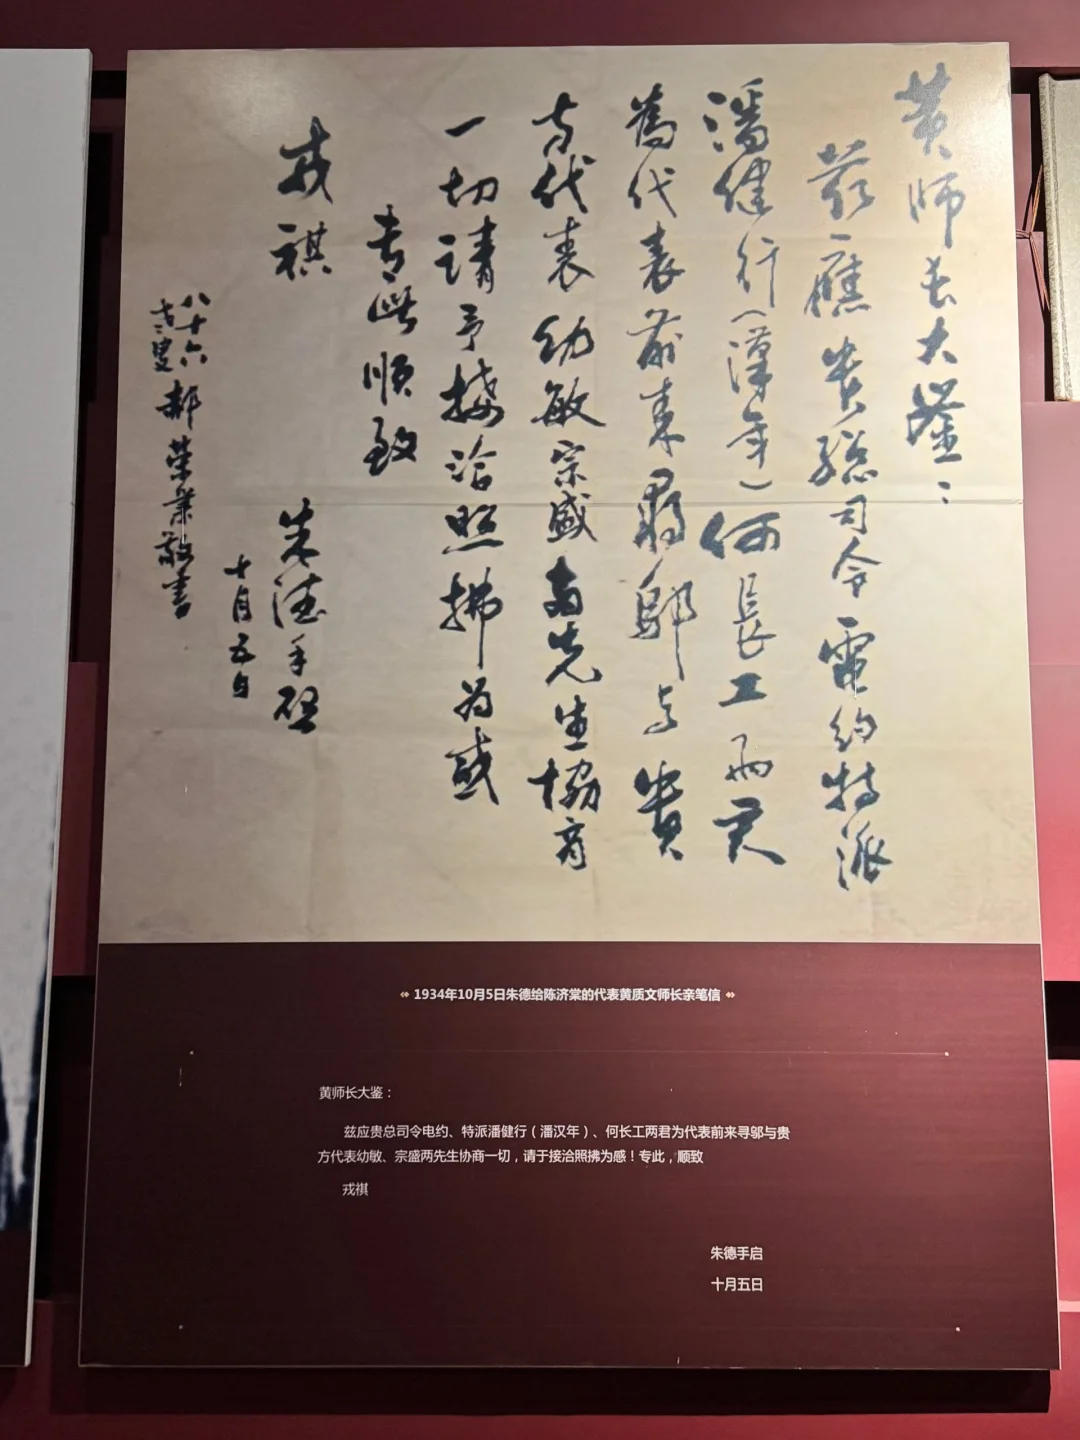 黄师长大鉴：
茲應貴總司令電约特派
潘健行（漢年）何長工两君
為代表前来尋鄔与貴
方代表幼敏宗盛两先生協商
一切请予接洽照拂为感
专此順致
戎祺
朱德手啓
十月五日
八十六
郝荣業敬書
1934年10月5日朱德给陈济棠的代表黄质文师长亲笔信
黄师长大鉴：
兹应贵总司令电约、特派潘健行（潘汉年）、何长工两君为代表前来寻邬与贵
方代表幼敏、宗盛两先生协商一切，请于接洽照拂为感！专此，顺致
戎祺
朱德手启
十月五日